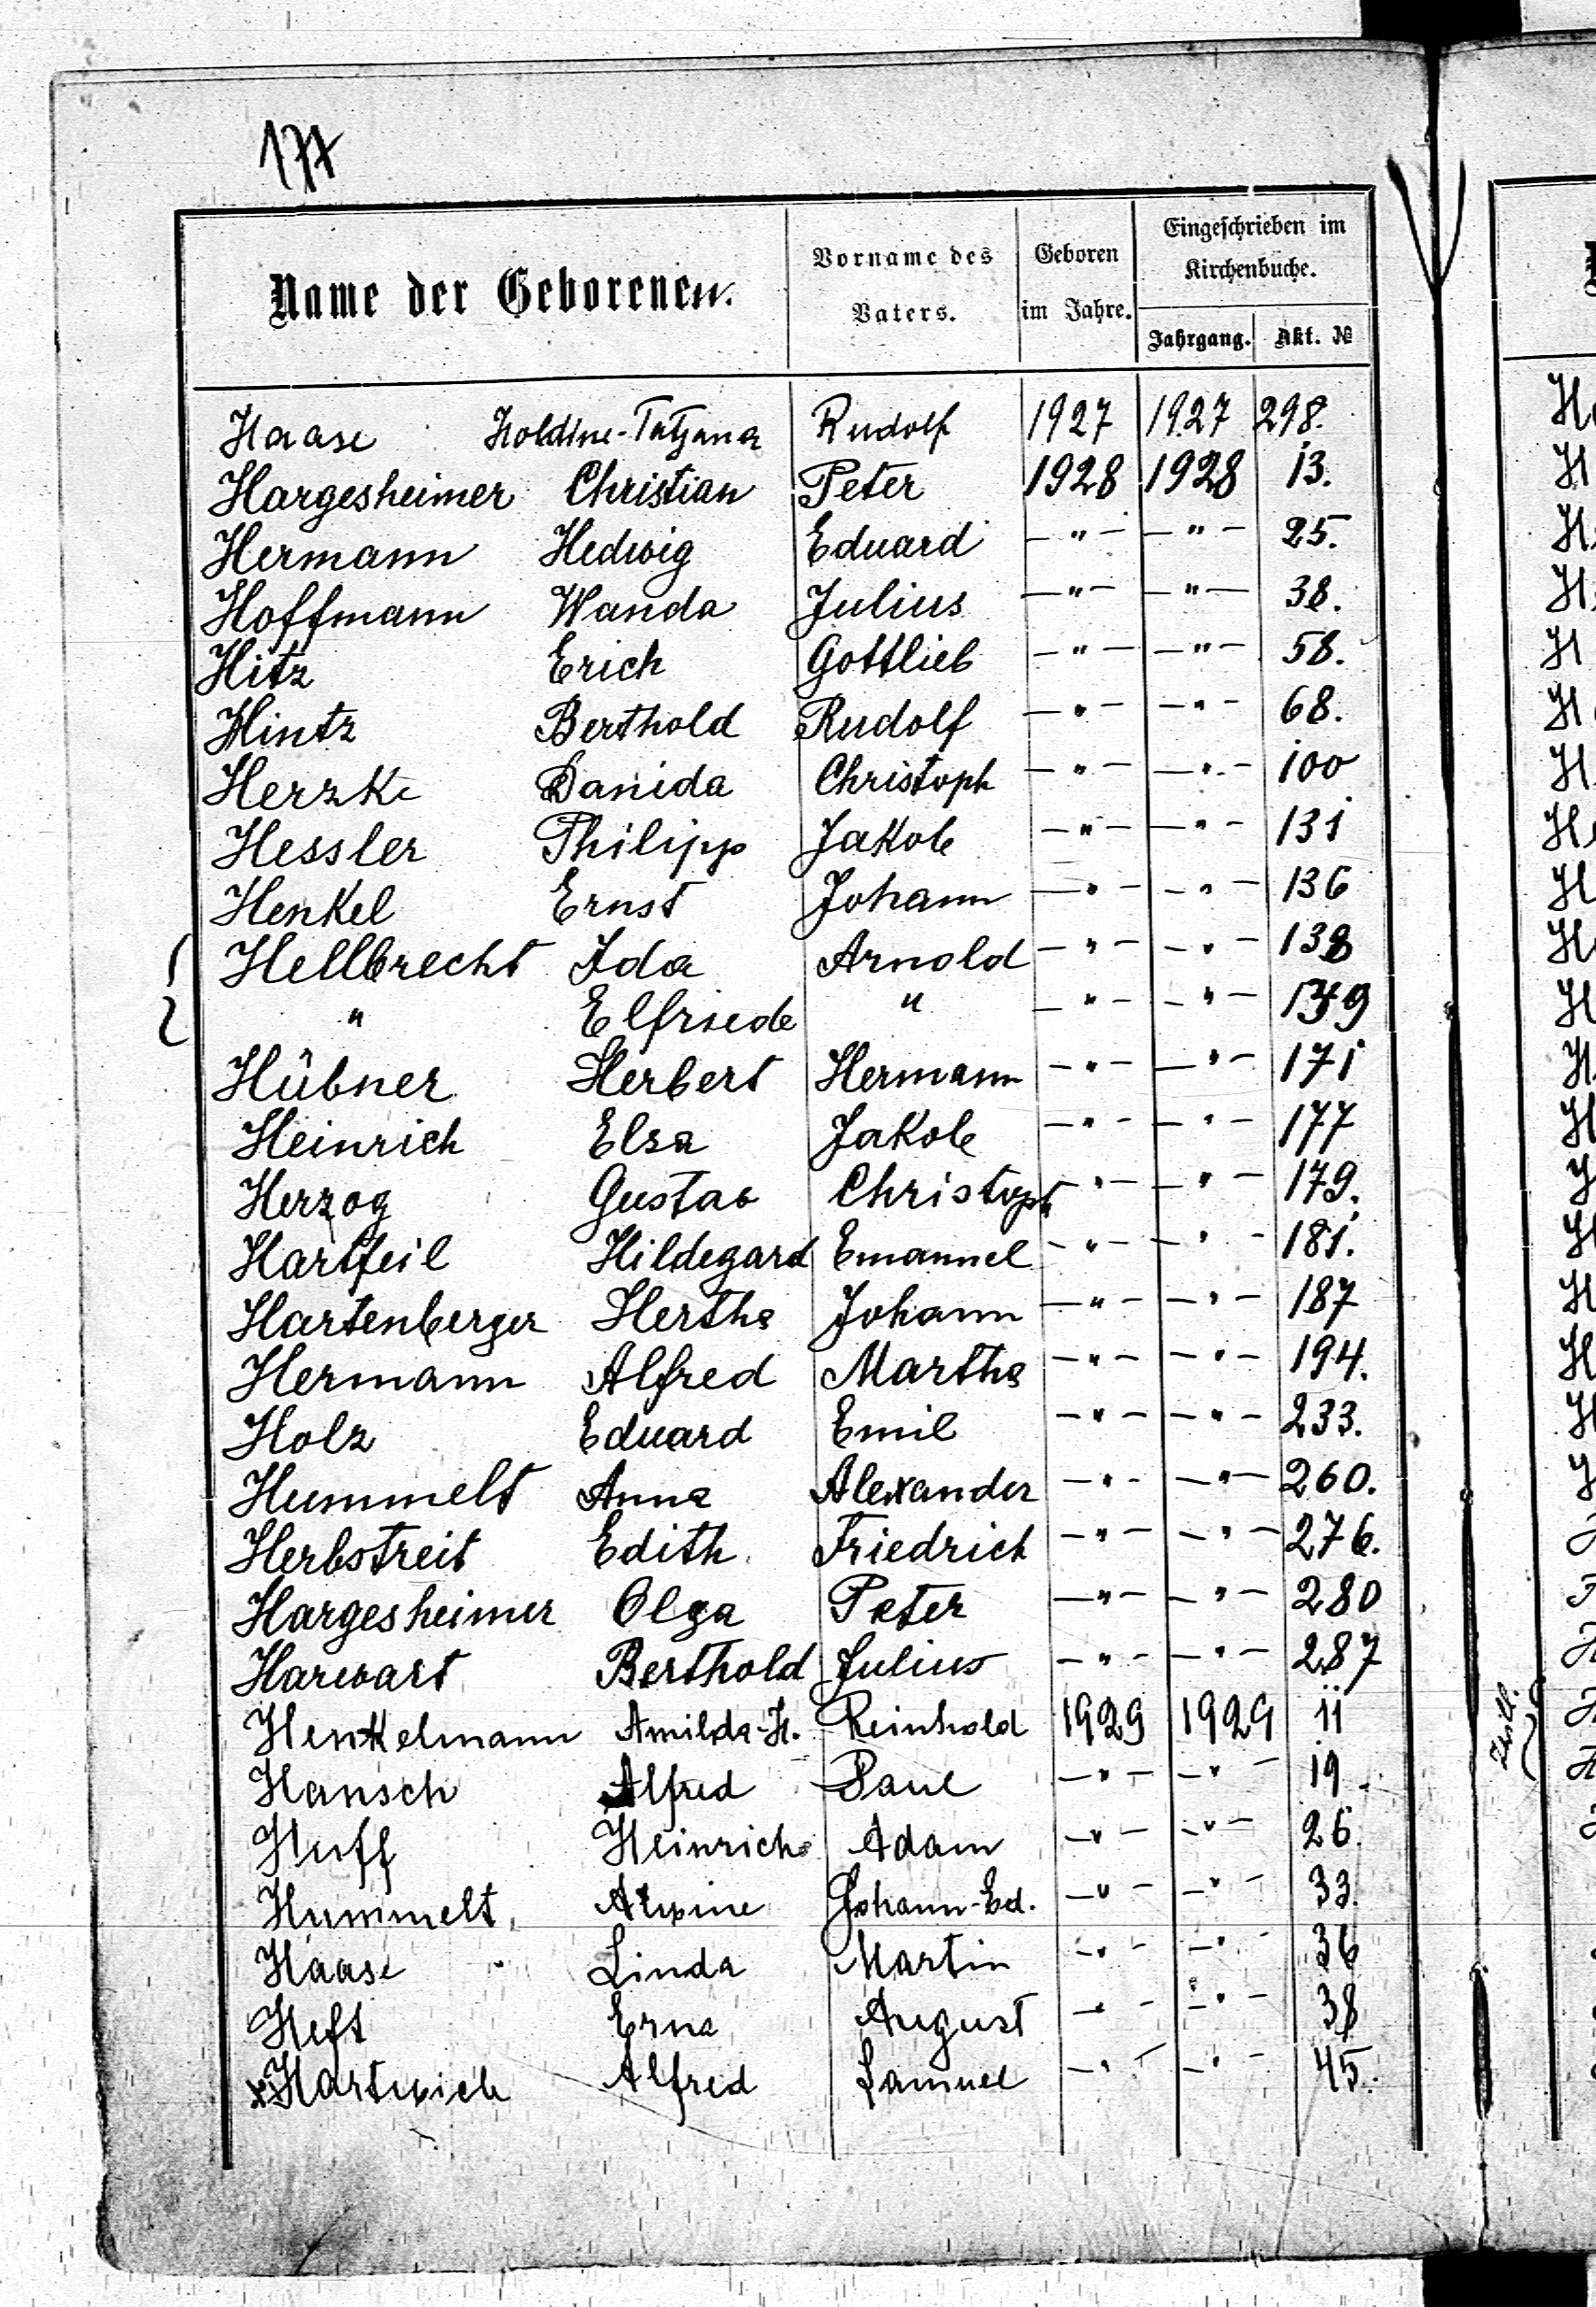 177
Name der Geborenen.
Vorname des Vaters.
Geboren im Jahre.
Eingeschrieben im Kirchenbuche.
Jahrgang. Akt. №
Haase Holdine-Tatjana Rudolf 1927 1927 298.
Hargesheimer Christian Peter 1928 1928 13.
Hermann Hedwig Eduard —"— —"— 25.
Hoffmann Wanda Julius —"— —"— 38.
Hitz Erich Gottlieb —"— —"— 58.
Hintz Berthold Rudolf —"— —"— 68.
Herzke Danida Christoph —"— —"— 100
Hessler Philipp Jakob —"— —"— 131
Henkel Ernst Johann —"— —"— 136
Hellbrecht Ida Arnold —"— —"— 138
" Elfriede " —"— —"— 139
Hübner Herbert Hermann —"— —"— 171
Heinrich Elsa Jakob —"— —"— 177
Herzog Gustav Christoph —"— —"— 179.
Hartfeil Hildegard Emanuel —"— —"— 181.
Hartenberger Hertha Johann —"— —"— 187
Hermann Alfred Martha —"— —"— 194.
Holz Eduard Emil —"— —"— 233.
Hummelt Anna Alexander —"— —"— 260.
Herbstreit Edith Friedrich —"— —"— 276.
Hargesheimer Olga Peter —"— —"— 280
Harwart Berthold Julius —"— —"— 287
Henkelmann Amilda-H. Reinhold 1929 1929 11
Hansch Alfred Paul —"— —"— 19.
Huff Heinrich Adam —"— —"— 26.
Hummelt Alwine Johann-Ed. —"— —"— 33.
Haase Linda Martin —"— —"— 36
Heft Erna August —"— —"— 38
x Hartwich Alfred Samuel —"— —"— 45.